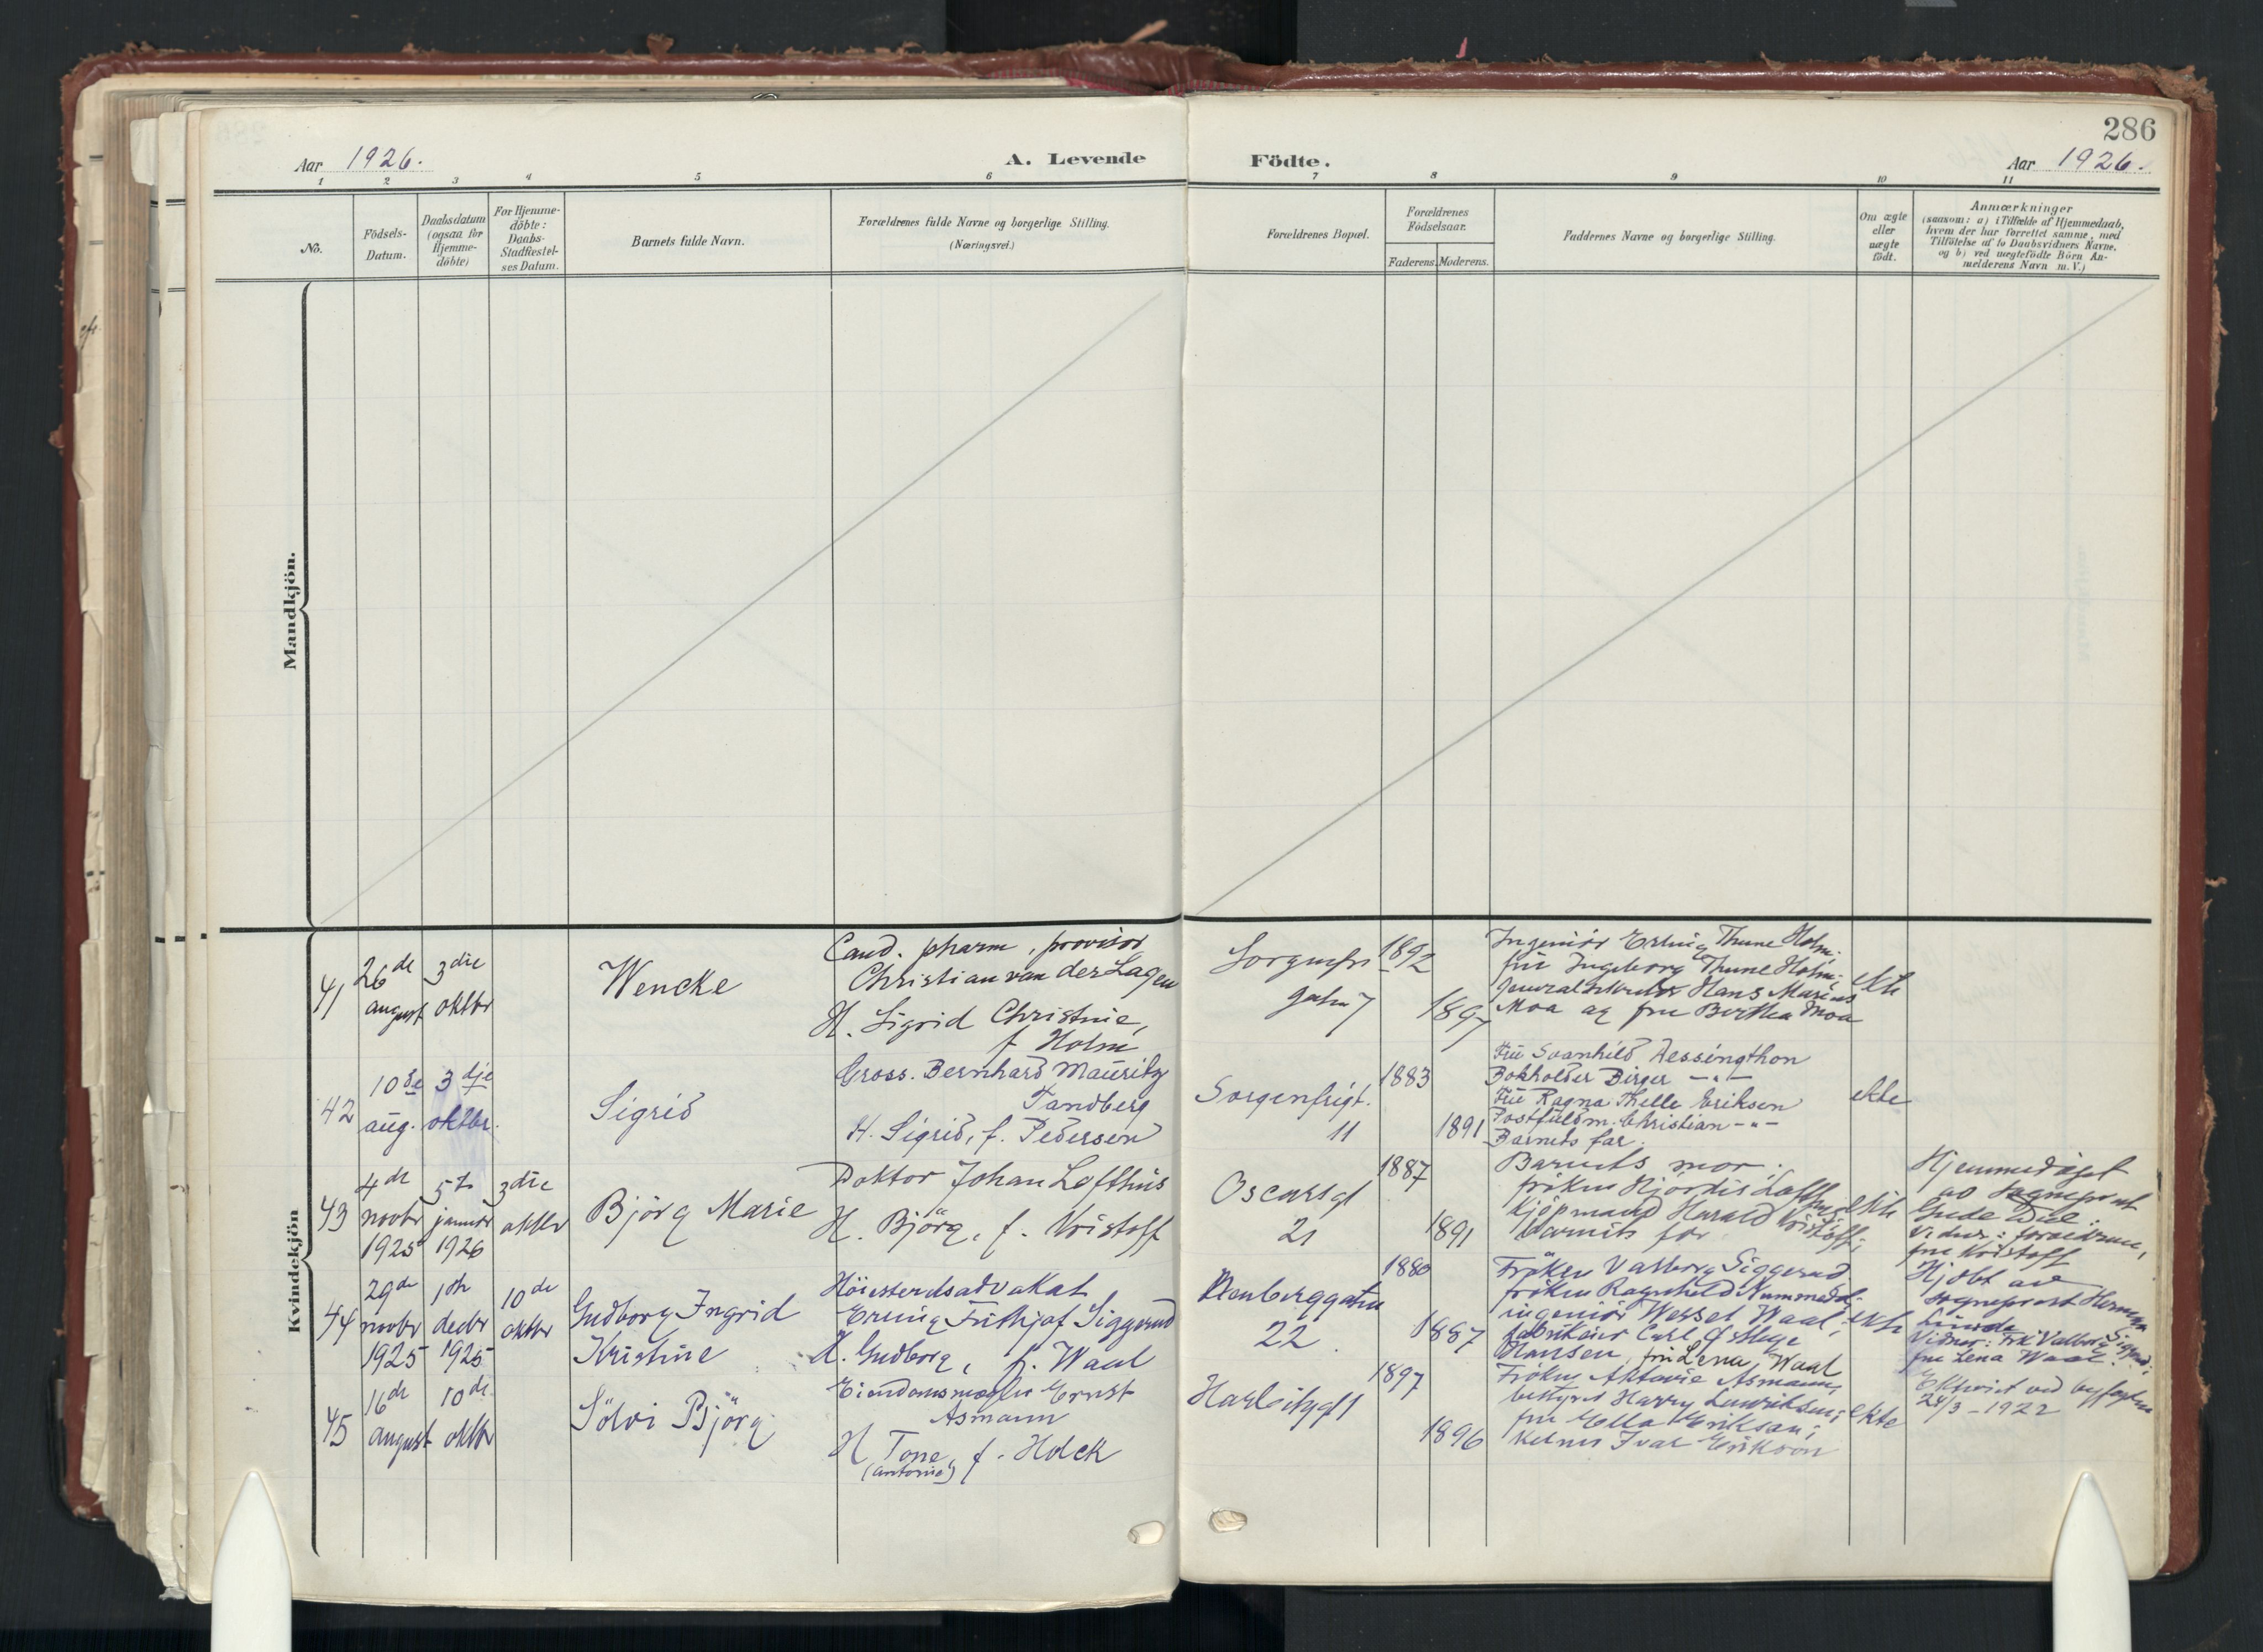 286
Aar 1926.
A. Levende Födte.
Aar 1926.
1 2 3 4 5 6 7 8 9 10 11
No.
Födsels-
Datum.
Daabsdatum
(ogsaa for
Hjemme-
döbte)
For Hjemme-
döbte:
Daabs-
Stadfæstel-
ses Datum.
Barnets fulde Navn.
Forældrenes fulde Navne og borgerlige Stilling.
(Næringsvei.)
Forældrenes Bopæl.
Forældrenes
Födselsaar.
Faderens. Moderens.
Faddernes Navne og borgerlige Stilling.
Om ægte
eller
uægte
födt.
Anmærkninger
(saasom: a) i Tilfælde af Hjemmedaab,
hvem der har forrettet samme, med
Tilföielse af to Daabsvidners Navne,
og b) ved uægtefödte Börn An-
melderens Navn m. V.)
Mandkjön.
Kvindekjön
41
26de
august
3die
oktbr
Wencke
Cand. pharm, provisor
Christian van der Lagen
H. Sigrid Christine,
f Holm
Sorgenfri
gaten 7
1892
1897
Ingeniör Erling Thune Holm;
frü Ingeborg Thune Holm;
Hans Marius
Moa og fru Bertha Moa
ekte
42
10de
aug.
3dje
oktbr.
Sigrid
Gross. Bernhard Mauritz
Tandberg
H. Sigrid, f. Pedersen
Sorgenfrigt.
11
1883
1891
Frü Svanhild Hessingthon
Bokholder Birger —"—
Frü Ragna Thelle Eriksen
Postfuldm. Christian —"—
Barnets far.
ekte
43
4de
novbr
1925
5te
januar
1926
3die
oktbr
Björg Marie
Doktor Johan Lofthus
H. Björg, f. Kristoff
Oscarsgt
21
1887
1891
Barnets mor;
fröken Hjördis Lofthus
kjöpmand Harald Kristoff;
barnets far
ekte
Hjemmedöpt
av sogneprest
Gude
Vidner: foreldrene,
fru Kristoff
44
29de
novbr
1925
1ste
decbr
1925
10de
oktbr
Gudborg Ingrid
Kristine
Höiesteretsadvokat
Erling Frithjof Siggerud
H. Gudborg, f. Waal
22
1880
1887
Fröken Valborg Siggerud
fröken Ragnhild Nummedal;
ingeniör Wessel Waal;
fabrikeier Carl
Hansen, fru Lena Waal
ekte
Hjdöbt av
sogneprest Herman
Lunde
Vidner: Frk Valborg Siggerud;
fru Lena Waal.
45
16de
august
10de
oktbr
Sölvi Björg
Eiendomsmægler Ernst
Asmann
H Tone, f. Holck
(Antonie)
Harbitzgt 1
1897
1896
Fröken Aktavie Asmann,
bestyrer Harry Henriksen;
fru Ella Erikson;
kelner Ivar Erikson
ekte
Ektviet ved byfogden
28/3 - 1922